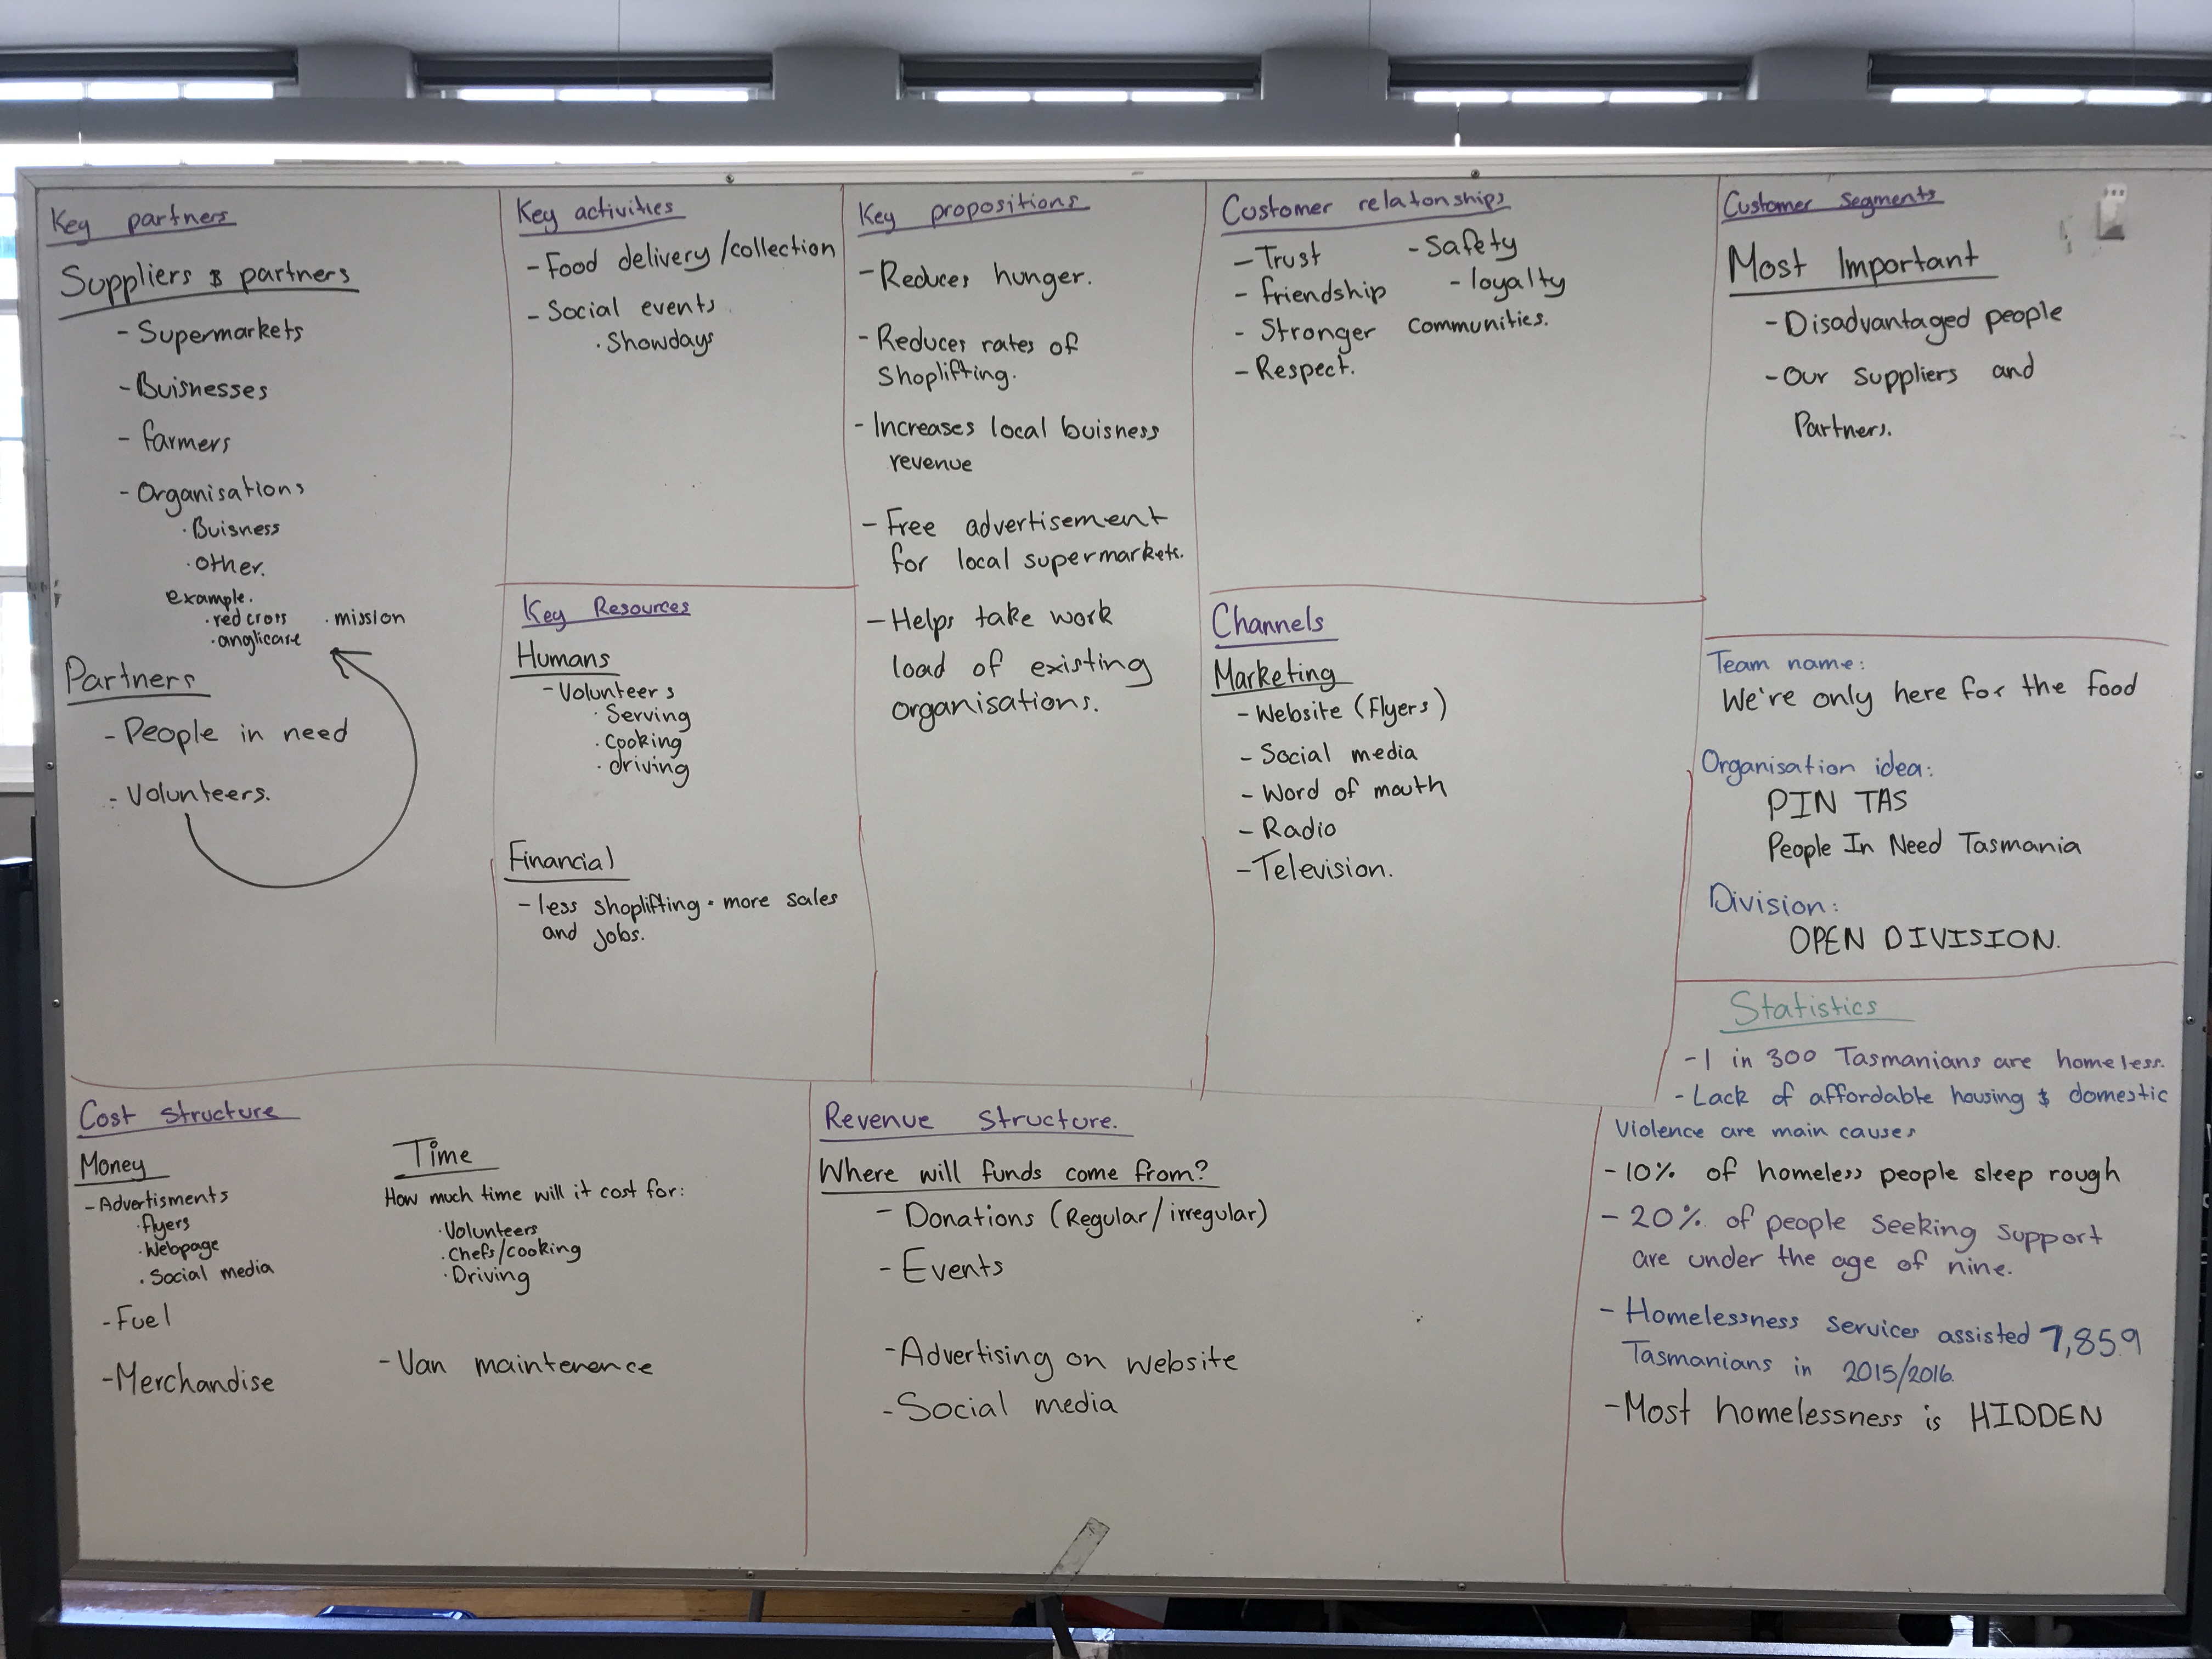 Key partners
Suppliers & partners
- Supermarkets
- Buisnesses
- farmers
- Organisations
· Buisness
· other.
example.
· red cross · mission
· anglicare
Partners
- People in need
- Volunteers.
Key activities
- Food delivery/collection
- Social events
· Showdays
Key Resources
Humans
- Volunteers
· Serving
· cooking
· driving
Financial
- less shoplifting · more sales
and jobs.
Key propositions
- Reduces hunger.
- Reduces rates of
Shoplifting.
- Increases local buisness
revenue
- Free advertisement
for local supermarkets.
- Helps take work
load of existing
organisations.
Customer relatonships
- Trust - Safety
- friendship - loyalty
- Stronger communities.
- Respect.
Channels
Marketing
- Website (Flyers)
- Social media
- Word of mouth
- Radio
- Television.
Customer segments
Most Important
- Disadvantaged people
- Our suppliers and
Partners.
Team name:
We're only here for the food
Organisation idea:
PIN TAS
People In Need Tasmania
Division:
OPEN DIVISION.
Statistics
- 1 in 300 Tasmanians are homeless.
- Lack of affordable housing & domestic
Violence are main causes
- 10% of homeless people sleep rough
- 20% of people seeking support
are under the age of nine.
- Homelessness services assisted 7,859
Tasmanians in 2015/2016.
- Most homelessness is HIDDEN
Cost structure
Money
- Advertisments
· flyers
· Webpage
· Social media
- Fuel
- Merchandise
Time
How much time will it cost for:
· Volunteers
· Chefs/cooking
· Driving
- Van maintenence
Revenue Structure.
Where will funds come from?
- Donations (Regular/irregular)
- Events
- Advertising on website
- Social media